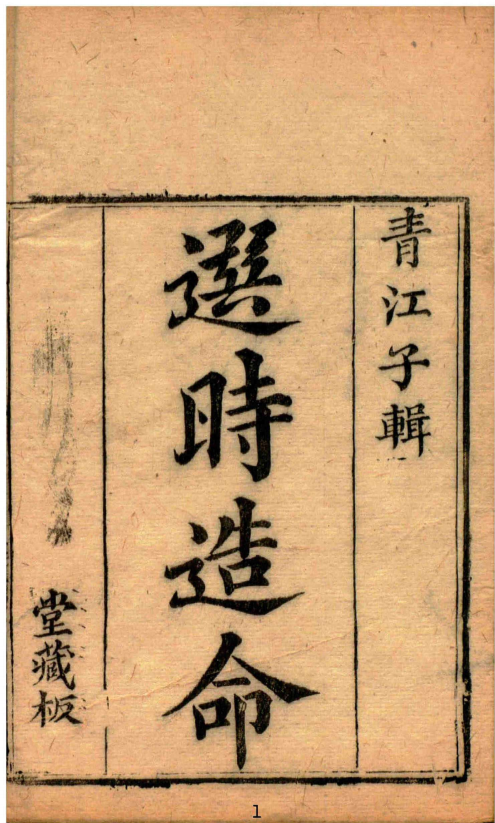 青江子輯
選時造命
堂藏板
1